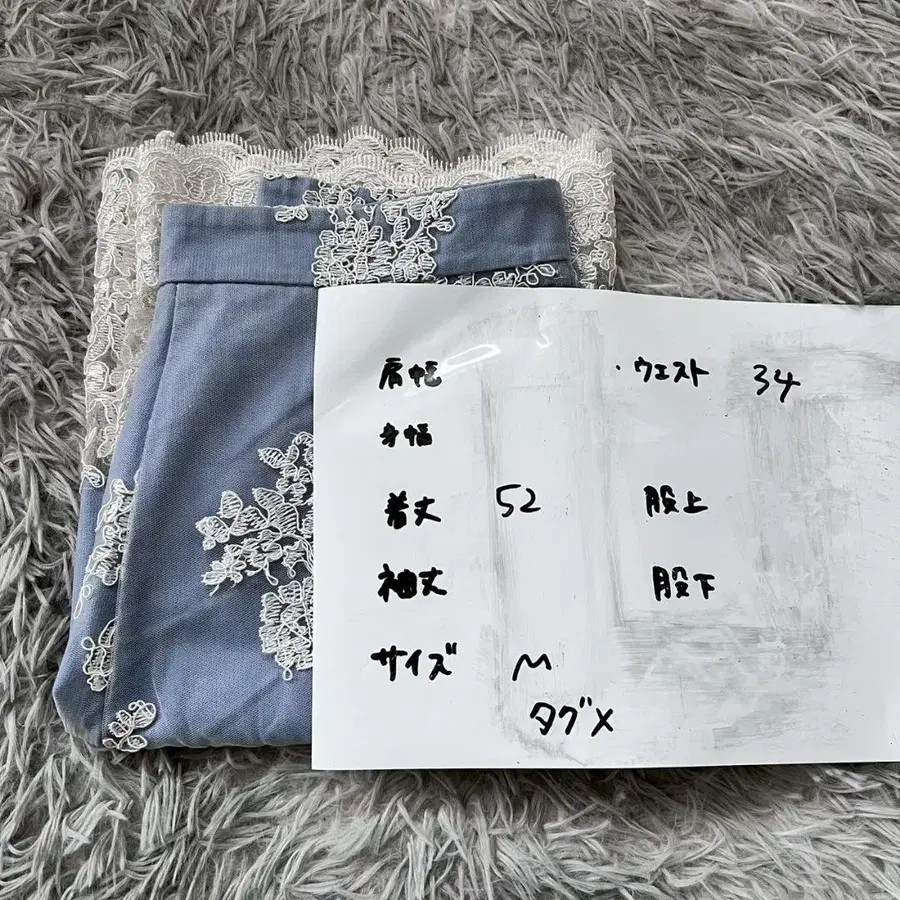 肩幅
・ウエスト 34
身幅
着丈 52
股上
袖丈
股下
サイズ M
タグ×